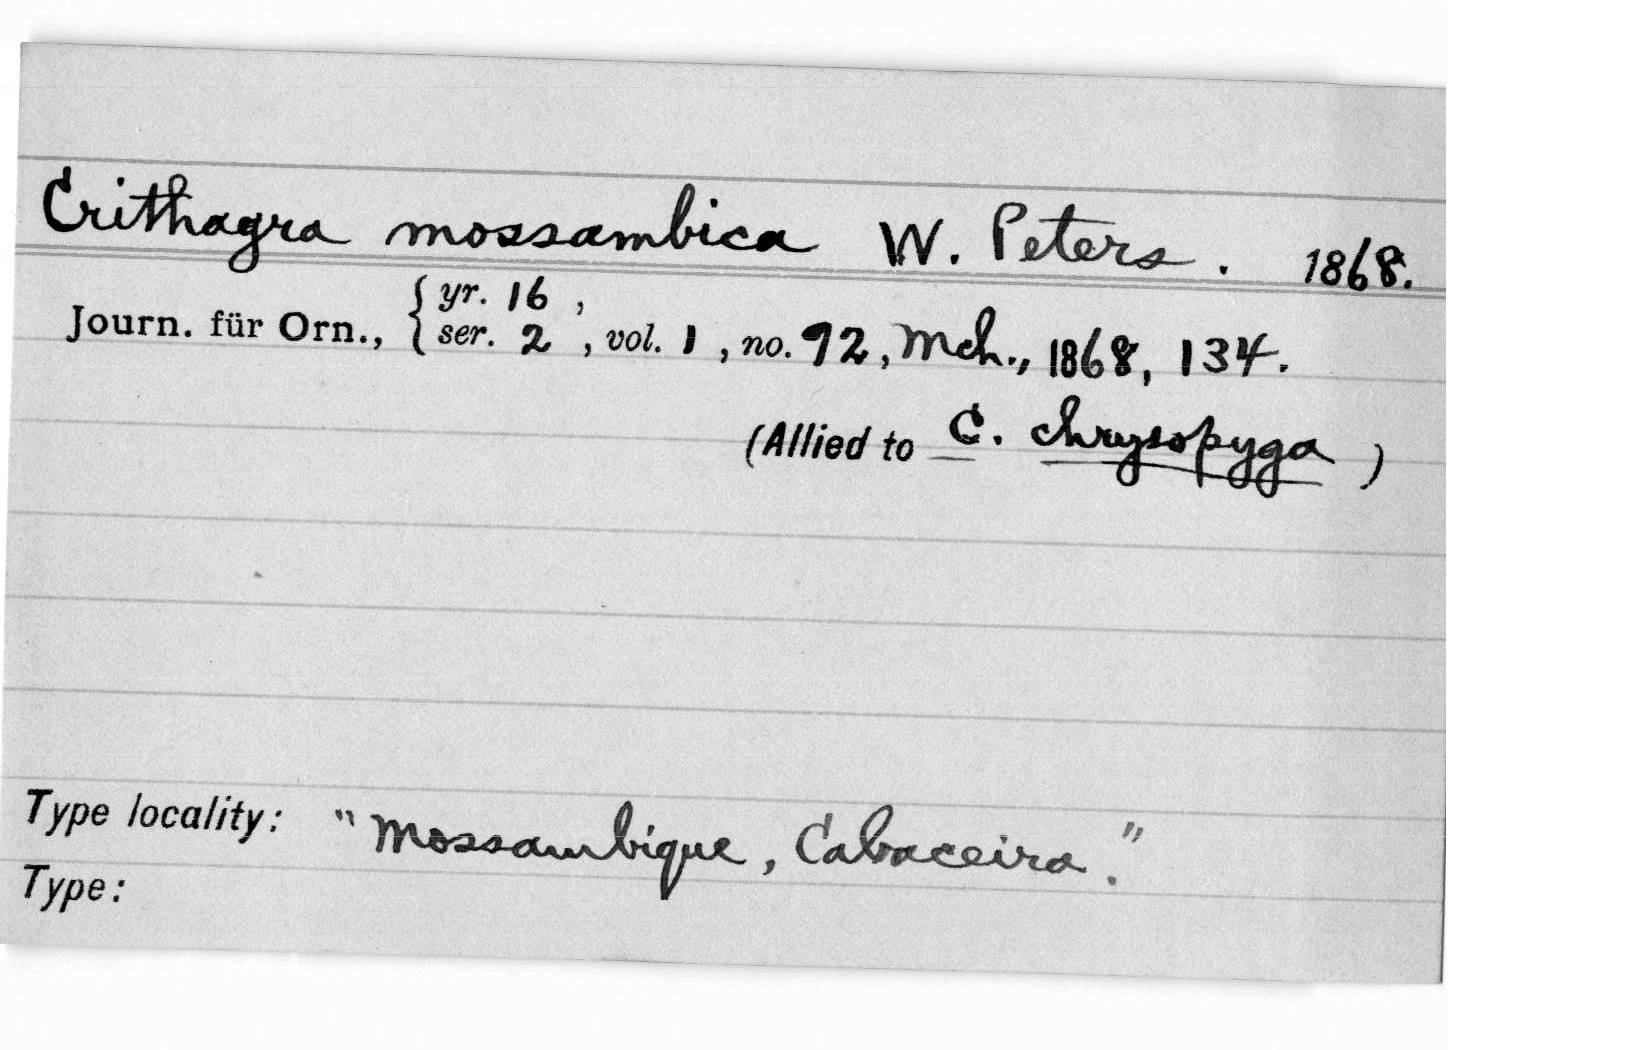 Crithagra mossambica W. Peters. 1868.
Journ. für Orn., { yr. 16 ,
ser. 2 , vol. 1 , no. 92, Mch., 1868, 134.
(Allied to C. chrysopyga )
Type locality: "Mossambique, Cabaceira."
Type: